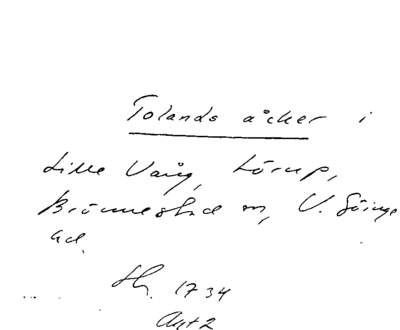 Tolands åcker i
Lille Vång, Lörup,
Brönnestad sn, V. Göinge
hd.
Sh. 1734
Akt 2